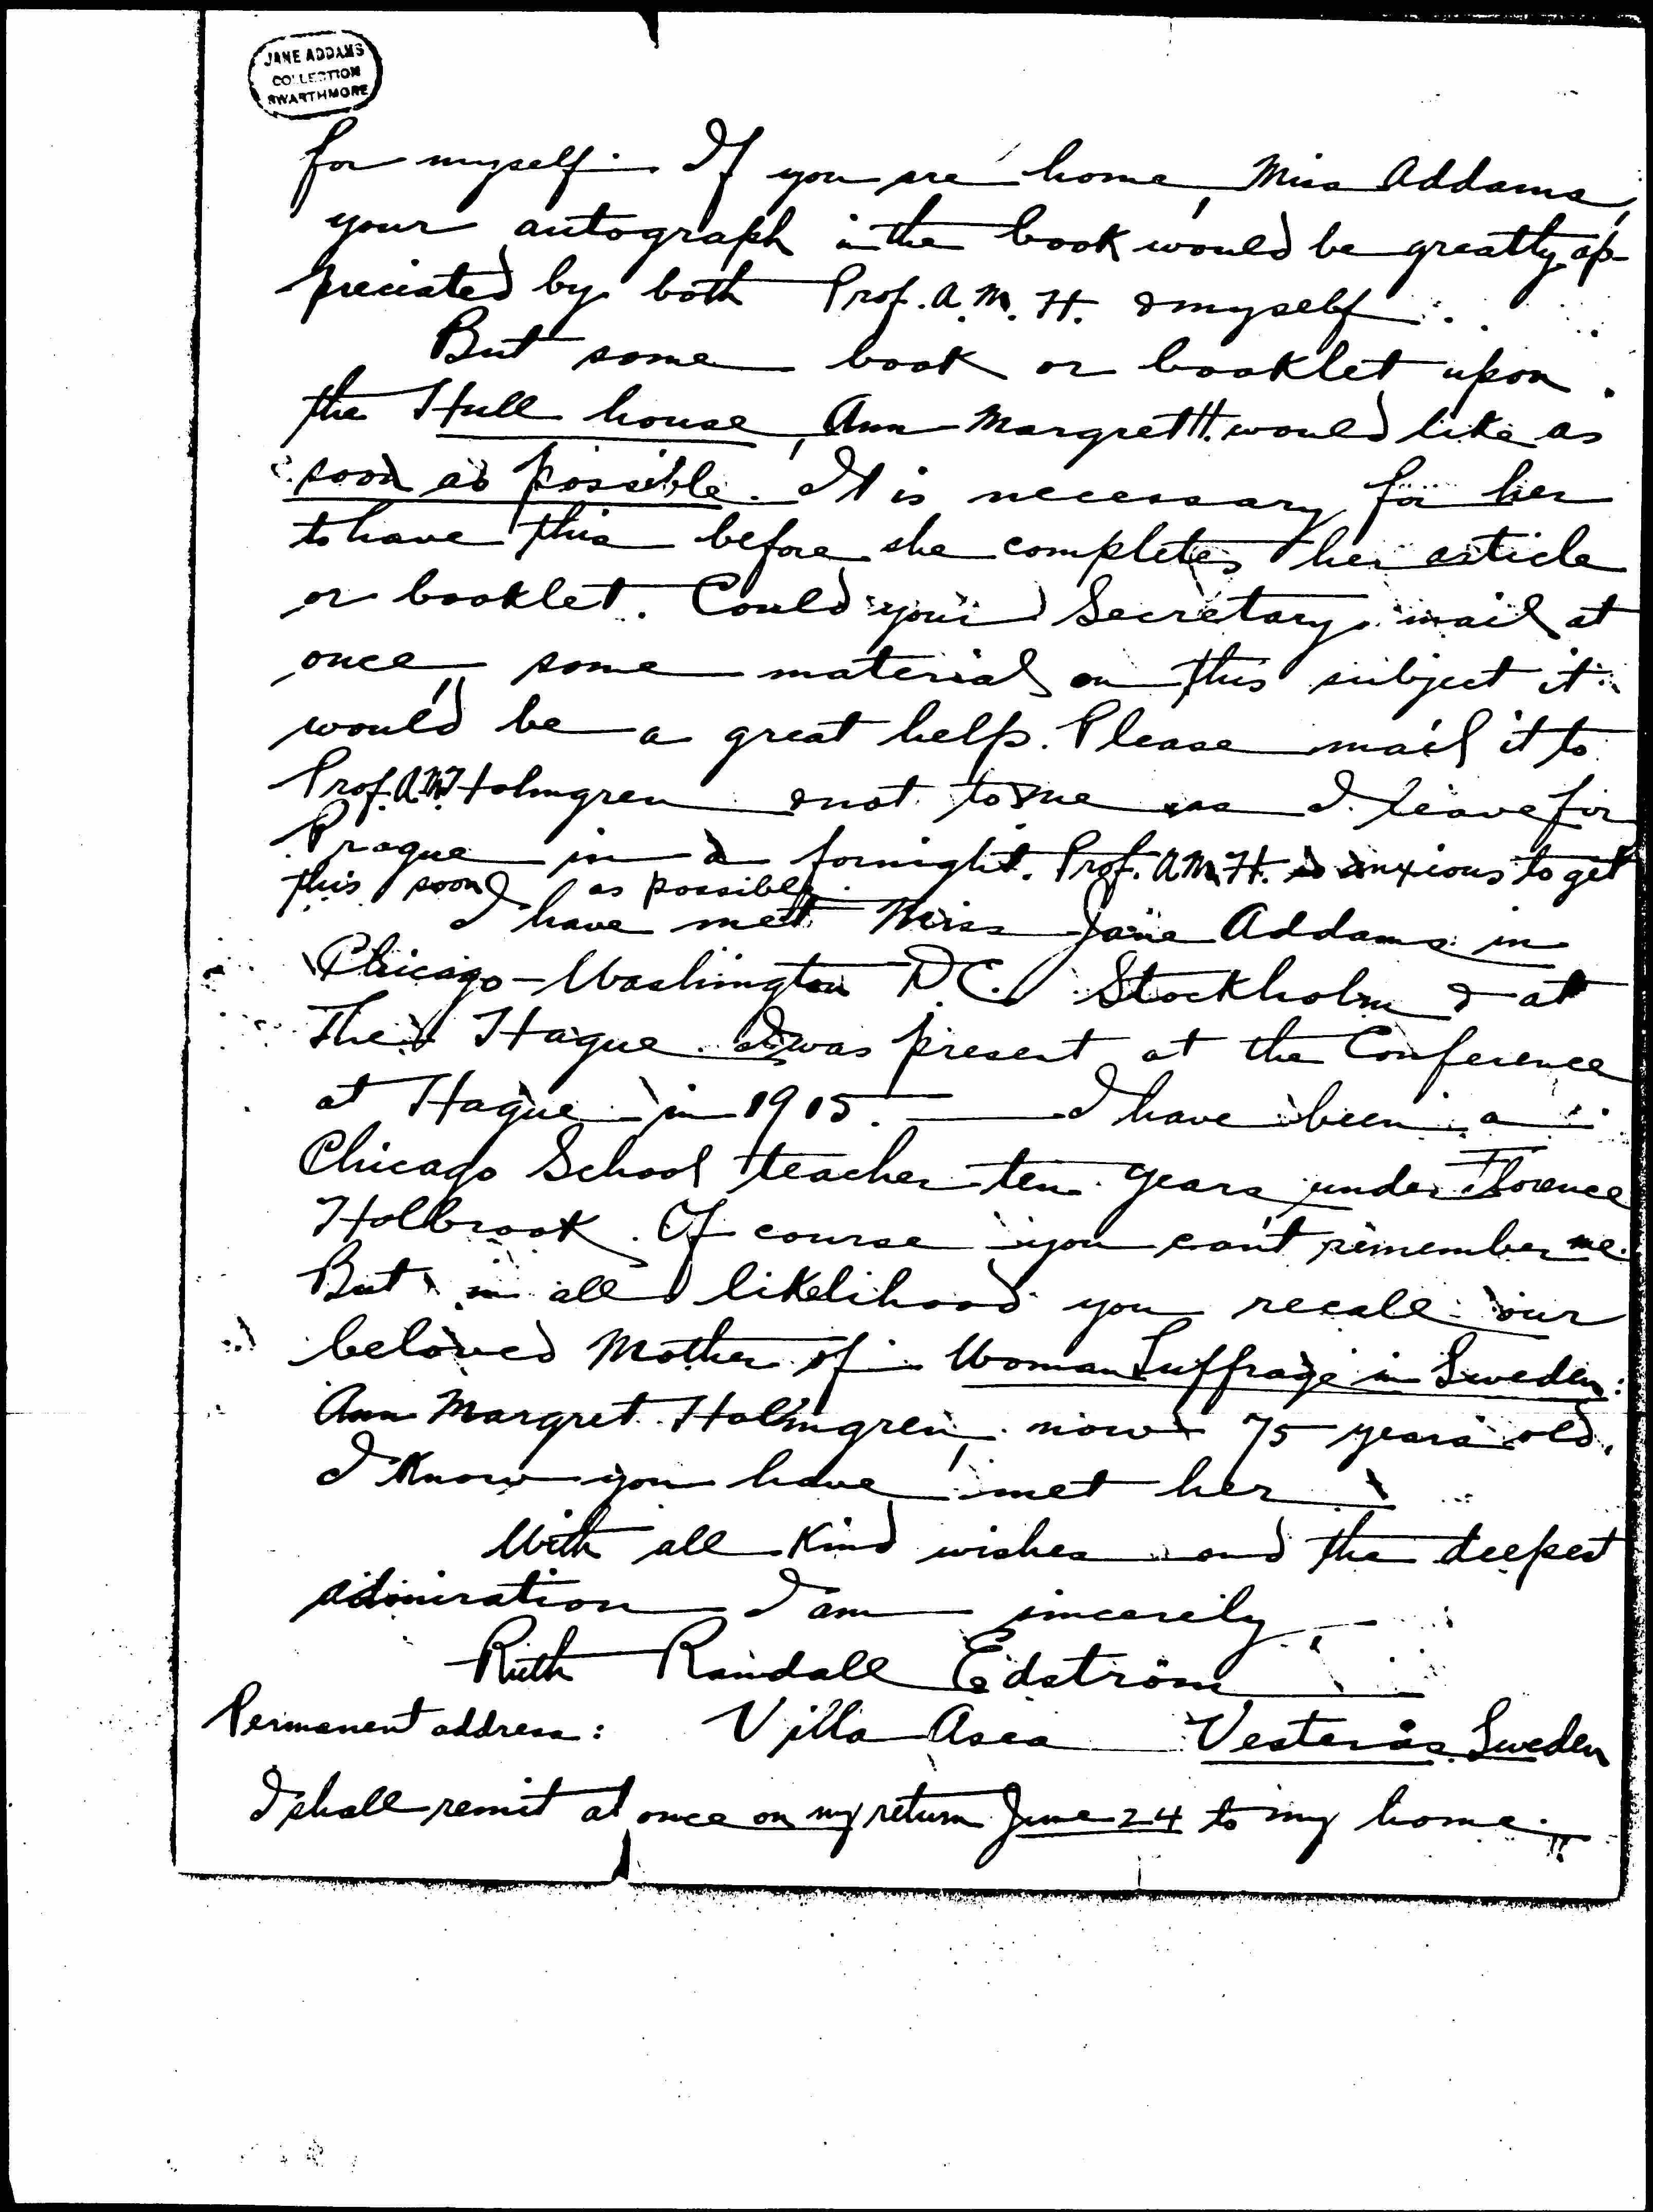 JANE ADDAMS
COLLECTION
SWARTHMORE
for myself. If you are home, Miss Addams,
your autograph in the book would be greatly ap-
preciated by both Prof. A. M. H. & myself.
But some book or booklet upon
the Hull house, Ann Margret H. would like as
soon as possible. It is necessary for her
to have this before she completes her article
or booklet. Could your Secretary mail at
once, some material on this subject it
would be a great help. Please mail it to
Prof. A. M. Holmgren & not to me as I leave for
Prague in a fornight. Prof. A M. H. is anxious to get
this soon as possible.
I have met Miss Jane Addams in
Chicago - Washington D C. Stockholm & at
The Hague. I was present at the Conference
at Hague in 1915. — I have been a
Chicago School teacher ten years under Florence
Holbrook. Of course you can't remember me.
But in all likelihood you recall our
beloved Mother of Woman Suffrage in Sweden:
Ann Margret Holmgren, now 75 years old.
I know you have met her.
With all kind wishes and the deepest
admiration I am sincerely,
Ruth Randall Edström
Permanent address: Villa Asea Vesterås Sweden
I shall remit at once on my return June 24 to my home.